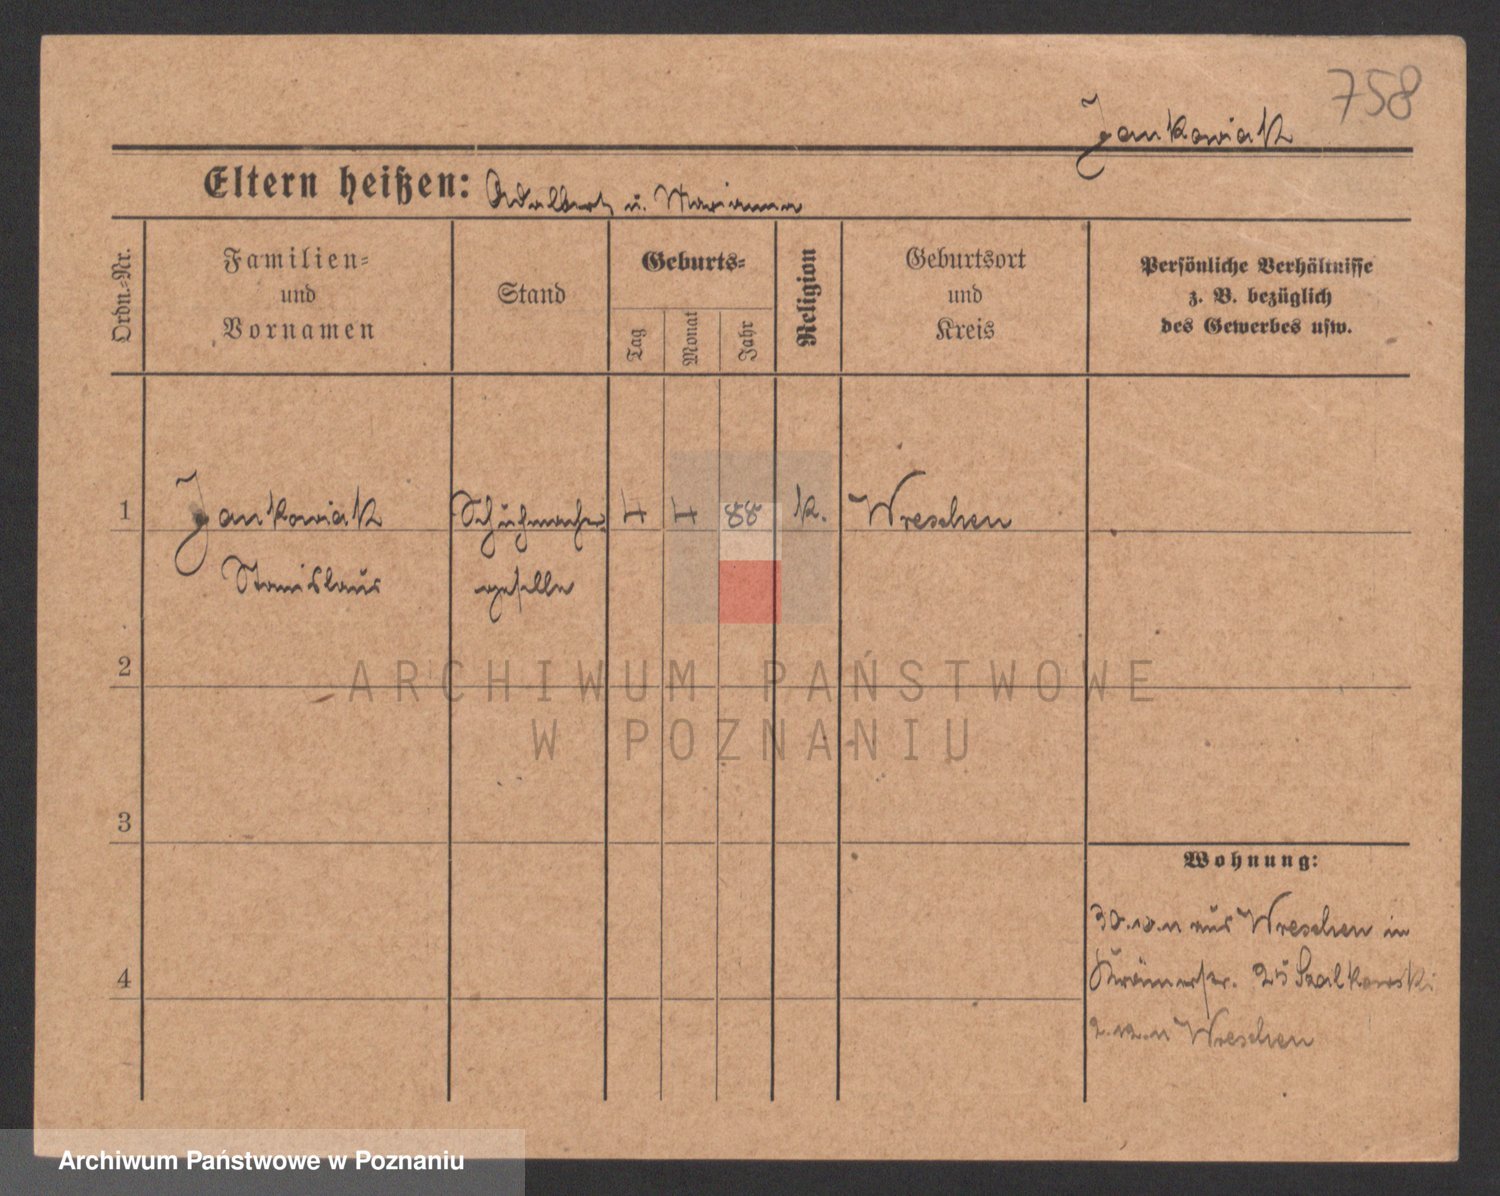 758
Jankowiak
Eltern heißen: Adalbert u. Marianna
Ordn.-Nr.
Familien-
und
Vornamen
Stand
Geburts-
Tag
Monat
Jahr
Religion
Geburtsort
und
Kreis
Persönliche Verhältnisse
z. B. bezüglich
des Gewerbes usw.
1 Jankowiak Schuhmacher- 4 4 88 k. Wreschen
Stanislaus geselle
2
ARCHIWUM PAŃSTWOWE
W POZNANIU
3
Wohnung:
30.10.11 aus Wreschen in
Krämerstr. 25 Szalkowski
4
2.12.11 Wreschen
Archiwum Państwowe w Poznaniu